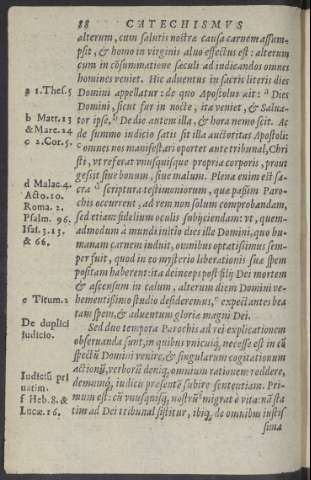 88 CATECHISMVS
alterum, cum salutis nostræ causa carnem assum-
psit, & homo in virginis aluo effectus est: alterum
cum in cōsummatione sæculi ad iudicandos omnes
homines veniet. Hic aduentus in sacris literis dies
a 1.Thes.5
Domini appellatur: de quo Apostolus ait: a Dies
Domini, sicut fur in nocte, ita veniet, & Salua-
b Matt.23
tor ipse, b De die autem illa, & hora nemo scit. Ac
& Marc.24
de summo iudicio satis sit illa auctoritas Apostoli:
c 2.Cor.5.
c omnes nos manifestari oportet ante tribunal, Chri
sti, vt referat vnusquisque propria corporis, prout
gessit siue bonum, siue malum. Plena enim est sa-
d Malac.4.
cra d scriptura testimoniorum, quæ passim Paro-
Acto.10.
chis occurrent, ad rem non solum comprobandam,
Roma. 2.
sed etiam fidelium oculis subijciendam: vt, quem-
Psalm. 96.
admodum à mundi initio dies ille Domini, quo hu-
Isai. 3.13.
manam carnem induit, omnibus optatissimus sem-
& 66.
per fuit, quod in eo mysterio liberationis suæ spem
positam haberent: ita deinceps post filij Dei mortem
& ascensum in cælum, alterum diem Domini ve-
e Titum.2
hementissimo studio desideremus, e expectantes bea
tam spem, & aduentum gloriæ magni Dei.
De duplici
Sed duo tempora Parochis ad rei explicationem
iudicio.
obseruanda sunt, in quibus vnicuiq́; necesse est in cō
spectū Domini venire, & singularum cogitationum
actionū, verborū deniq́; omnium rationem reddere,
Iudiciū pri
demumq́; iudicis præsentē subire sententiam. Pri-
uatim.
mum est: cū vnusquisq́; nostrū migrat è vita: nā sta
f Heb. 8. &
tim ad Dei tribunal sistitur, ibiq́; de omnibus iustis
Lucæ. 16.
sima